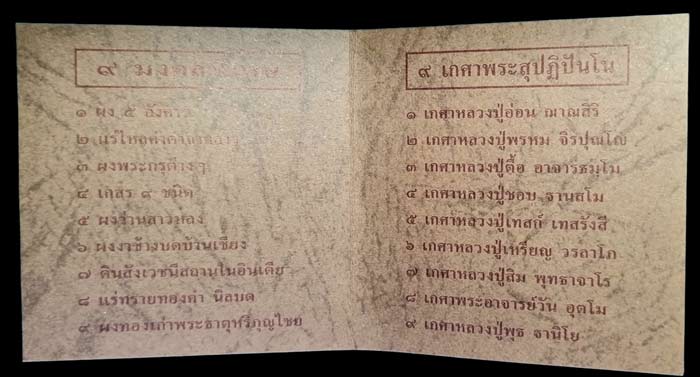 ๙ มงคล
๑ ผง ๕ อังคาร
๒ แร่ไหลดำ
๓ ผงพระกรุต่างๆ
๔ เกสร ๙ ชนิด
๕ ผงว่านสาวหลง
๖ ผงงาช้างบดบ้านเชียง
๗ ดินสังเวชนียสถานในอินเดีย
๘ แร่ทรายทองคำ นิลบด
๙ ผงทองเก่าพระธาตุหริภุญไชย
๙ เกศาพระสุปฏิปันโน
๑ เกศาหลวงปู่อ่อน ญาณสิริ
๒ เกศาหลวงปู่พรหม จิรปุญโญ
๓ เกศาหลวงปู่ตื้อ อาจารธมฺโม
๔ เกศาหลวงปู่ชอบ ฐานสโม
๕ เกศาหลวงปู่เทสก์ เทสรังสี
๖ เกศาหลวงปู่เหรียญ วรลาโภ
๗ เกศาหลวงปู่สิม พุทธาจาโร
๘ เกศาพระอาจารย์วัน อุตโม
๙ เกศาหลวงปู่พุธ ฐานิโย